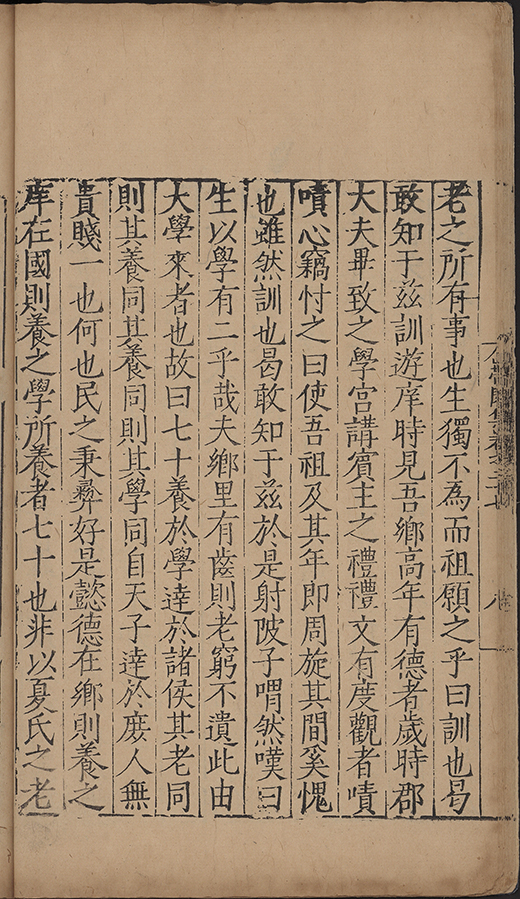 老之所有事也生獨不為而祖願之乎曰訓也曷
敢知于兹訓遊庠時見吾鄉高年有德者歲時郡
大夫畢致之學宫講賓主之禮禮文有度觀者嘖
嘖心竊忖之曰使吾祖及其年即周旋其間奚愧
也雖然訓也曷敢知于兹於是射陂子喟然嘆曰
生以學有二乎哉夫鄉里有齒則老窮不遺此由
大學來者也故曰七十養於學達於諸侯其老同
則其養同其養同則其學同自天子達於庶人無
貴賤一也何也民之秉彞好是懿德在鄉則養之
庠在國則養之學所養者七十也非以夏氏之老